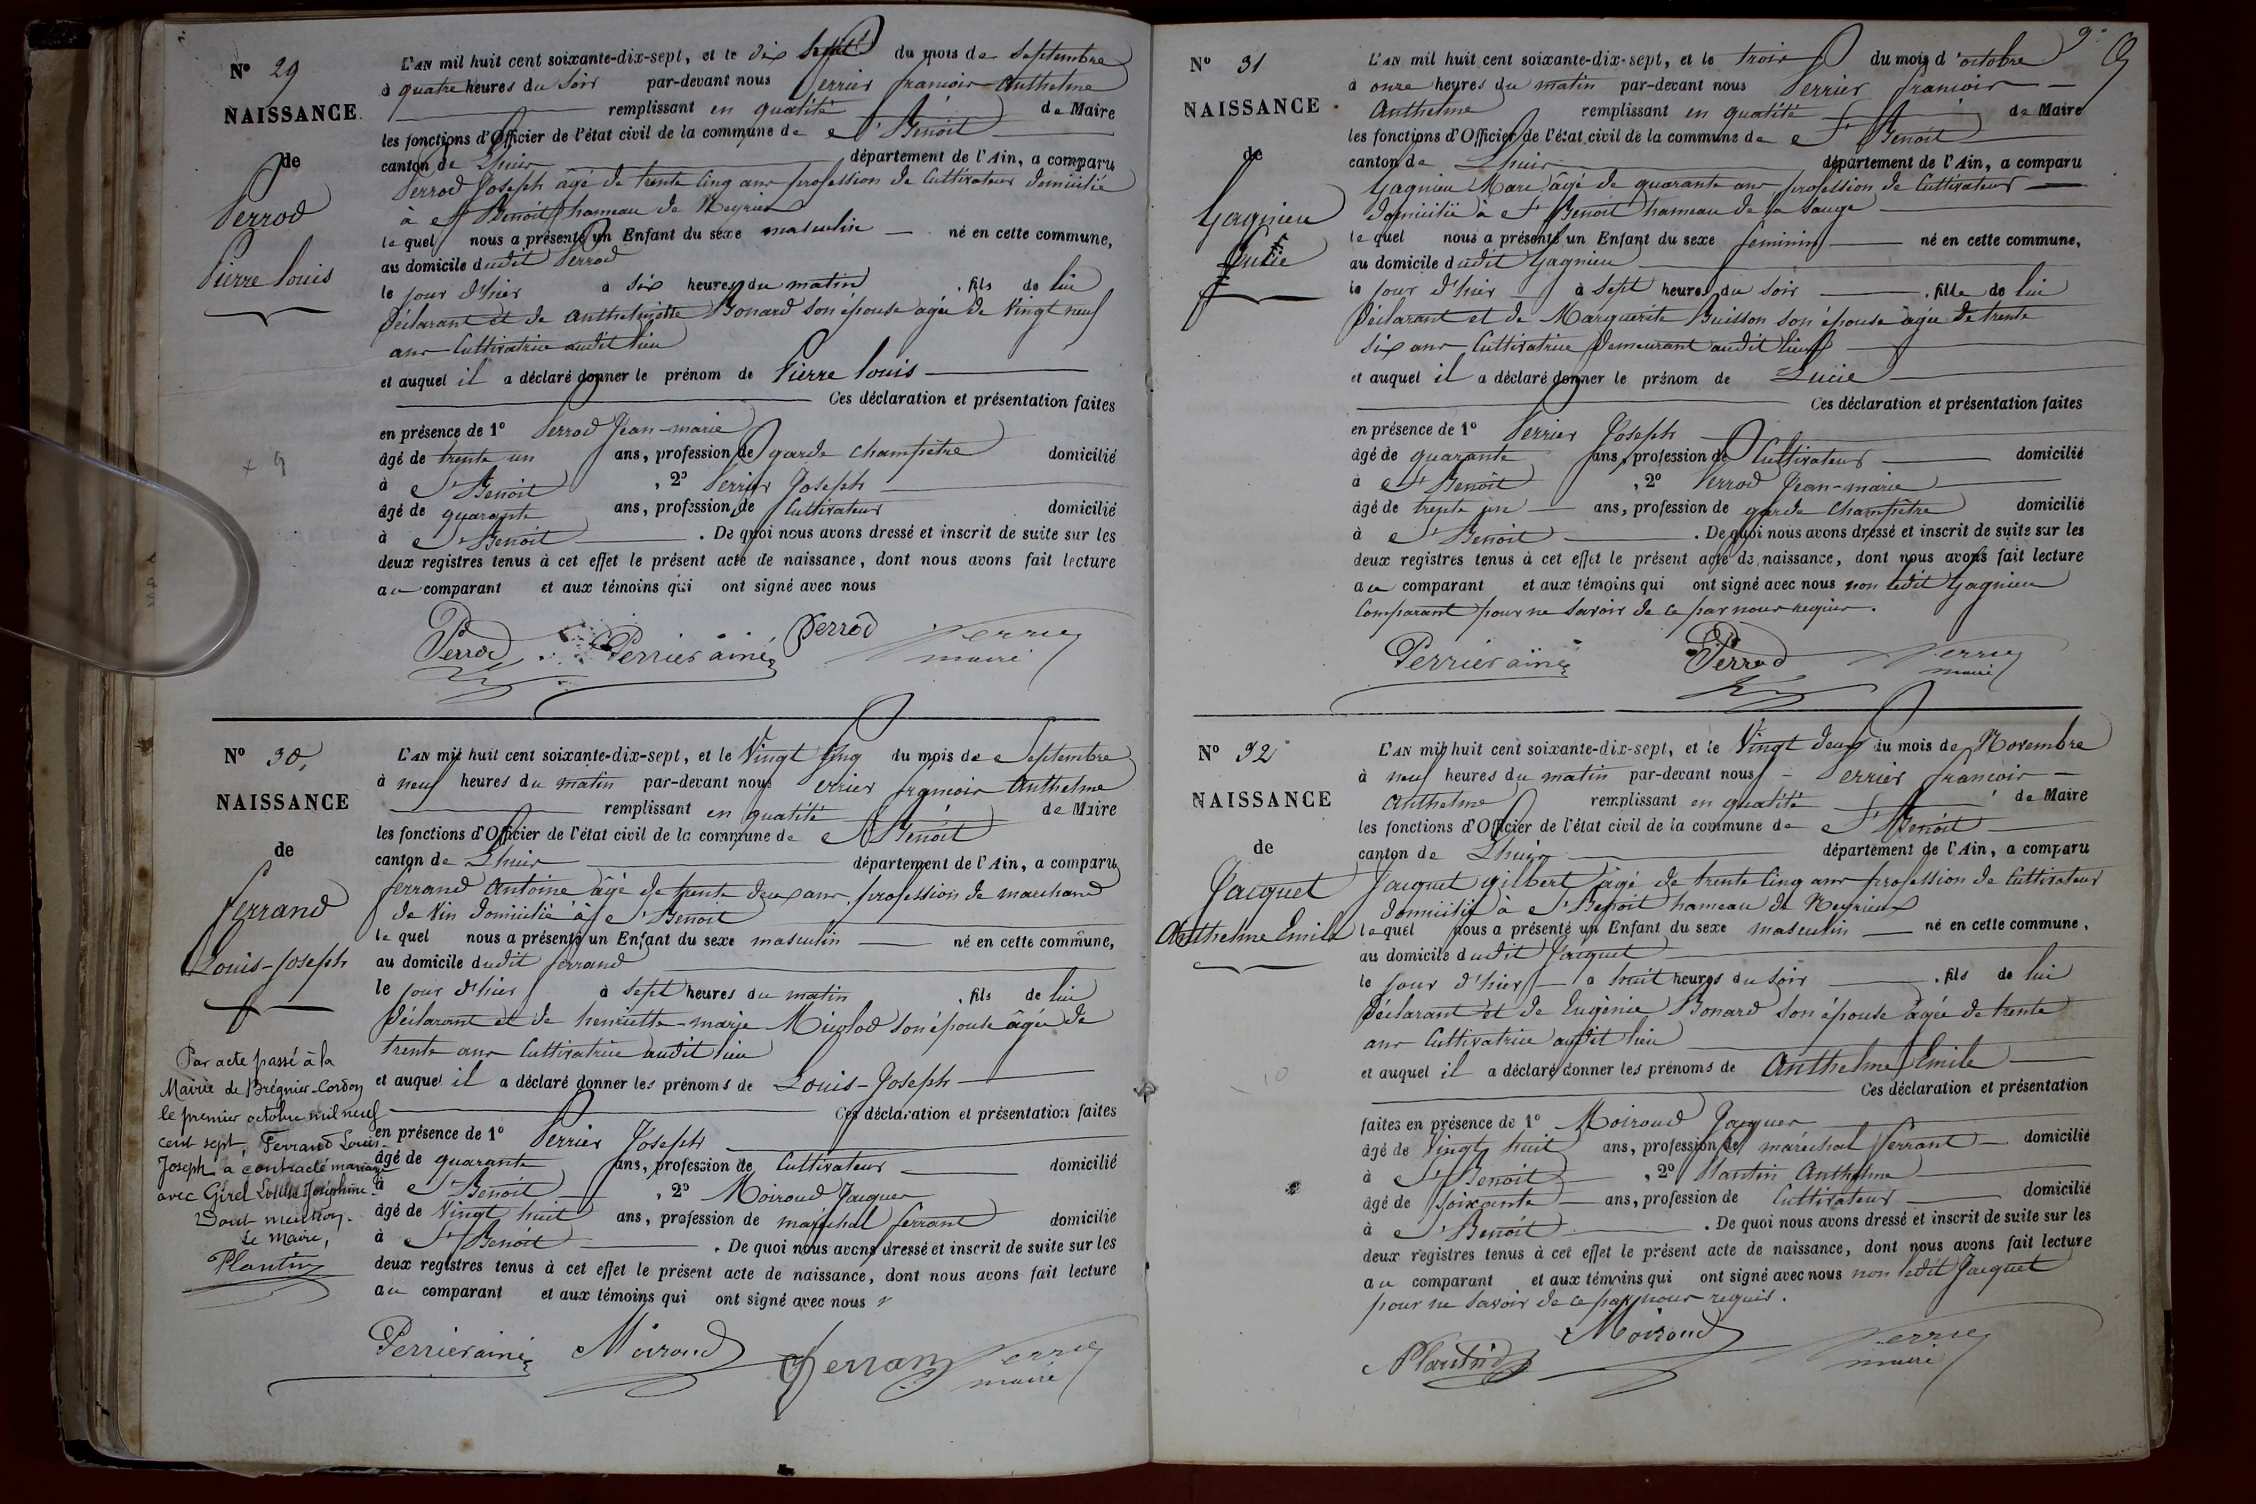 N° 29
NAISSANCE
de
Perrod
Pierre Louis
L'AN mil huit cent soixante-dix-sept, et le dix Sept du mois de Septembre
à quatre heures du Soir par-devant nous Perrier françois Anthelme
remplissant en qualité de Maire
les fonctions d'Officier de l'état civil de la commune de St Benoit
canton de Lhuis département de l'Ain, a comparu
Perrod Joseph âgé de trente Cinq ans profession de Cultivateur domicilié
à St Benoit hameau de Meyrieu
lequel nous a présenté un Enfant du sexe masculin né en cette commune,
au domicile dudit Perrod
le jour d'hier à six heures du matin , fils de lui
déclarant et de Anthelmette Bonard son épouse agée de Vingt neuf
ans Cultivatrice audit lieu
et auquel il a déclaré donner le prénom de Pierre Louis
Ces déclaration et présentation faites
en présence de 1° Perrod Jean-marie
âgé de trente un ans, profession de garde Champêtre domicilié
à St Benoit , 2° Perrier Joseph
âgé de quarante ans, profession de Cultivateur domicilié
à St Benoit . De quoi nous avons dressé et inscrit de suite sur les
deux registres tenus à cet effet le présent acte de naissance, dont nous avons fait lecture
au comparant et aux témoins qui ont signé avec nous
Perrod Perrier ainé Perrod Perrier
maire
N° 30
NAISSANCE
de
ferrand
Louis-Joseph
Par acte passé à la
Mairie de Brégnier-Cordon
le premier octobre mil neuf
cent sept, Ferrand Louis-
Joseph a contracté mariage
avec Girel Louise Joséphine
Dont mention.
Le Maire,
Plantin
L'AN mil huit cent soixante-dix-sept, et le Vingt Cinq du mois de Septembre
à neuf heures du matin par-devant nous Perrier françois Anthelme
remplissant en qualité de Maire
les fonctions d'Officier de l'état civil de la commune de St Benoit
canton de Lhuis département de l'Ain, a comparu
ferrand Antoine âgé de trente deux ans profession de marchand
de Vin domicilié à St Benoit
lequel nous a présenté un Enfant du sexe masculin né en cette commune,
au domicile dudit ferrand
le jour d'hier à Sept heures du matin , fils de lui
déclarant et de henriette-marie Miglod son épouse âgée de
trente ans Cultivatrice audit lieu
et auquel il a déclaré donner les prénoms de Louis-Joseph
Ces déclaration et présentation faites
en présence de 1° Perrier Joseph
âgé de quarante ans, profession de Cultivateur domicilié
à St Benoit , 2° Moiroud Jacques
âgé de Vingt huit ans, profession de maréchal ferrant domicilié
à St Benoit . De quoi nous avons dressé et inscrit de suite sur les
deux registres tenus à cet effet le présent acte de naissance, dont nous avons fait lecture
au comparant et aux témoins qui ont signé avec nous
Perrier ainé Moiroud ferrand Perrier
maire
N° 31
NAISSANCE
de
Gagnieu
Lucie
L'AN mil huit cent soixante-dix-sept, et le trois du mois d'octobre
à onze heures du matin par-devant nous Perrier françois
Anthelme remplissant en qualité de Maire
les fonctions d'Officier de l'état civil de la commune de St Benoit
canton de Lhuis département de l'Ain, a comparu
Gagnieu Marc âgé de quarante ans profession de Cultivateur
domicilié à St Benoit hameau de la Sauge
lequel nous a présenté un Enfant du sexe feminin né en cette commune,
au domicile dudit Gagnieu
le jour d'hier à Sept heures du Soir , fille de lui
déclarant et de Marguerite Buisson son épouse âgée de trente
six ans Cultivatrice demeurant audit lieu
et auquel il a déclaré donner le prénom de Lucie
Ces déclaration et présentation faites
en présence de 1° Perrier Joseph
âgé de quarante ans, profession de Cultivateur domicilié
à St Benoit , 2° Perrod Jean-marie
âgé de trente un ans, profession de garde Champêtre domicilié
à St Benoit . De quoi nous avons dressé et inscrit de suite sur les
deux registres tenus à cet effet le présent acte de naissance, dont nous avons fait lecture
au comparant et aux témoins qui ont signé avec nous non ledit Gagnieu
Comparant pour ne savoir de ce par nous requis.
Perrier ainé Perrod Perrier
maire
N° 32
NAISSANCE
de
Jacquet
Anthelme Emile
L'AN mil huit cent soixante-dix-sept, et le Vingt deux du mois de Novembre
à neuf heures du matin par-devant nous Perrier françois
Anthelme remplissant en qualité de Maire
les fonctions d'Officier de l'état civil de la commune de St Benoit
canton de Lhuis département de l'Ain, a comparu
Jacquet Gilbert âgé de trente Cinq ans profession de Cultivateur
domicilié à St Benoit hameau de Meyrieux
lequel nous a présenté un Enfant du sexe masculin né en cette commune,
au domicile dudit Jacquet
le jour d'hier à huit heures du Soir , fils de lui
déclarant et de Eugénie Bonard son épouse âgée de trente
ans Cultivatrice audit lieu
et auquel il a déclaré donner les prénoms de Anthelme Emile
Ces déclaration et présentation
faites en présence de 1° Moiroud Jacques
âgé de Vingt huit ans, profession de maréchal ferrant domicilié
à St Benoit , 2° Plantin Anthelme
âgé de soixante ans, profession de Cultivateur domicilié
à St Benoit . De quoi nous avons dressé et inscrit de suite sur les
deux registres tenus à cet effet le présent acte de naissance, dont nous avons fait lecture
au comparant et aux témoins qui ont signé avec nous non ledit Jacquet
pour ne savoir de ce par nous requis.
Plantin Moiroud Perrier
maire